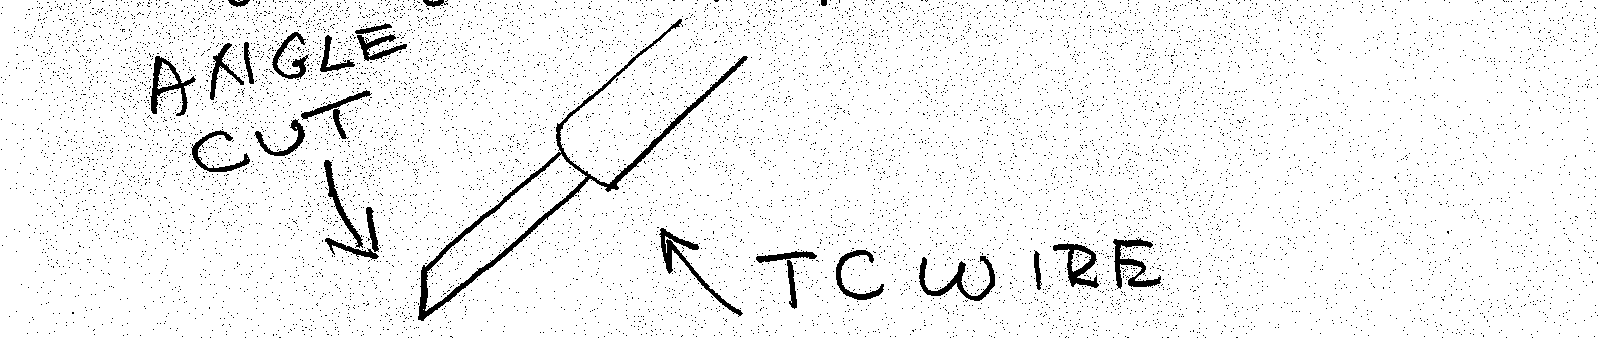 ANGLE
CUT
TC WIRE